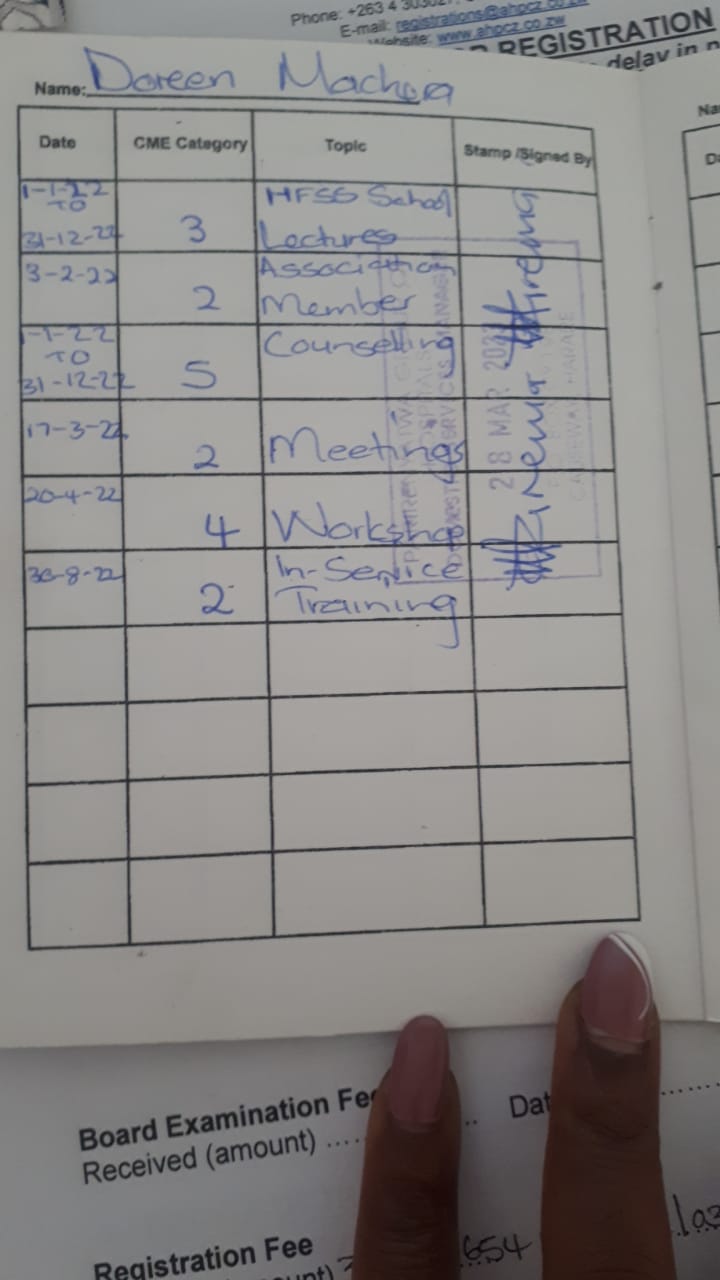 Phone: +263 4
E-mail: registrations@ahpcz.co.zw
Website: www.ahpcz.co.zw
REGISTRATION
delay in
Name: Doreen
Date CME Category Topic Stamp /Signed By
1-1-22 TO 31-12-22 3 HFSG School Lectures
3-2-22 2 Association Member
1-1-22 TO 31-12-22 5 Counselling
17-3-22 2 Meetings
20-4-22 4 Workshop
30-8-22 2 In-Service Training
28 MAR
Board Examination Fee
Received (amount) ..... Dat
Registration Fee
654